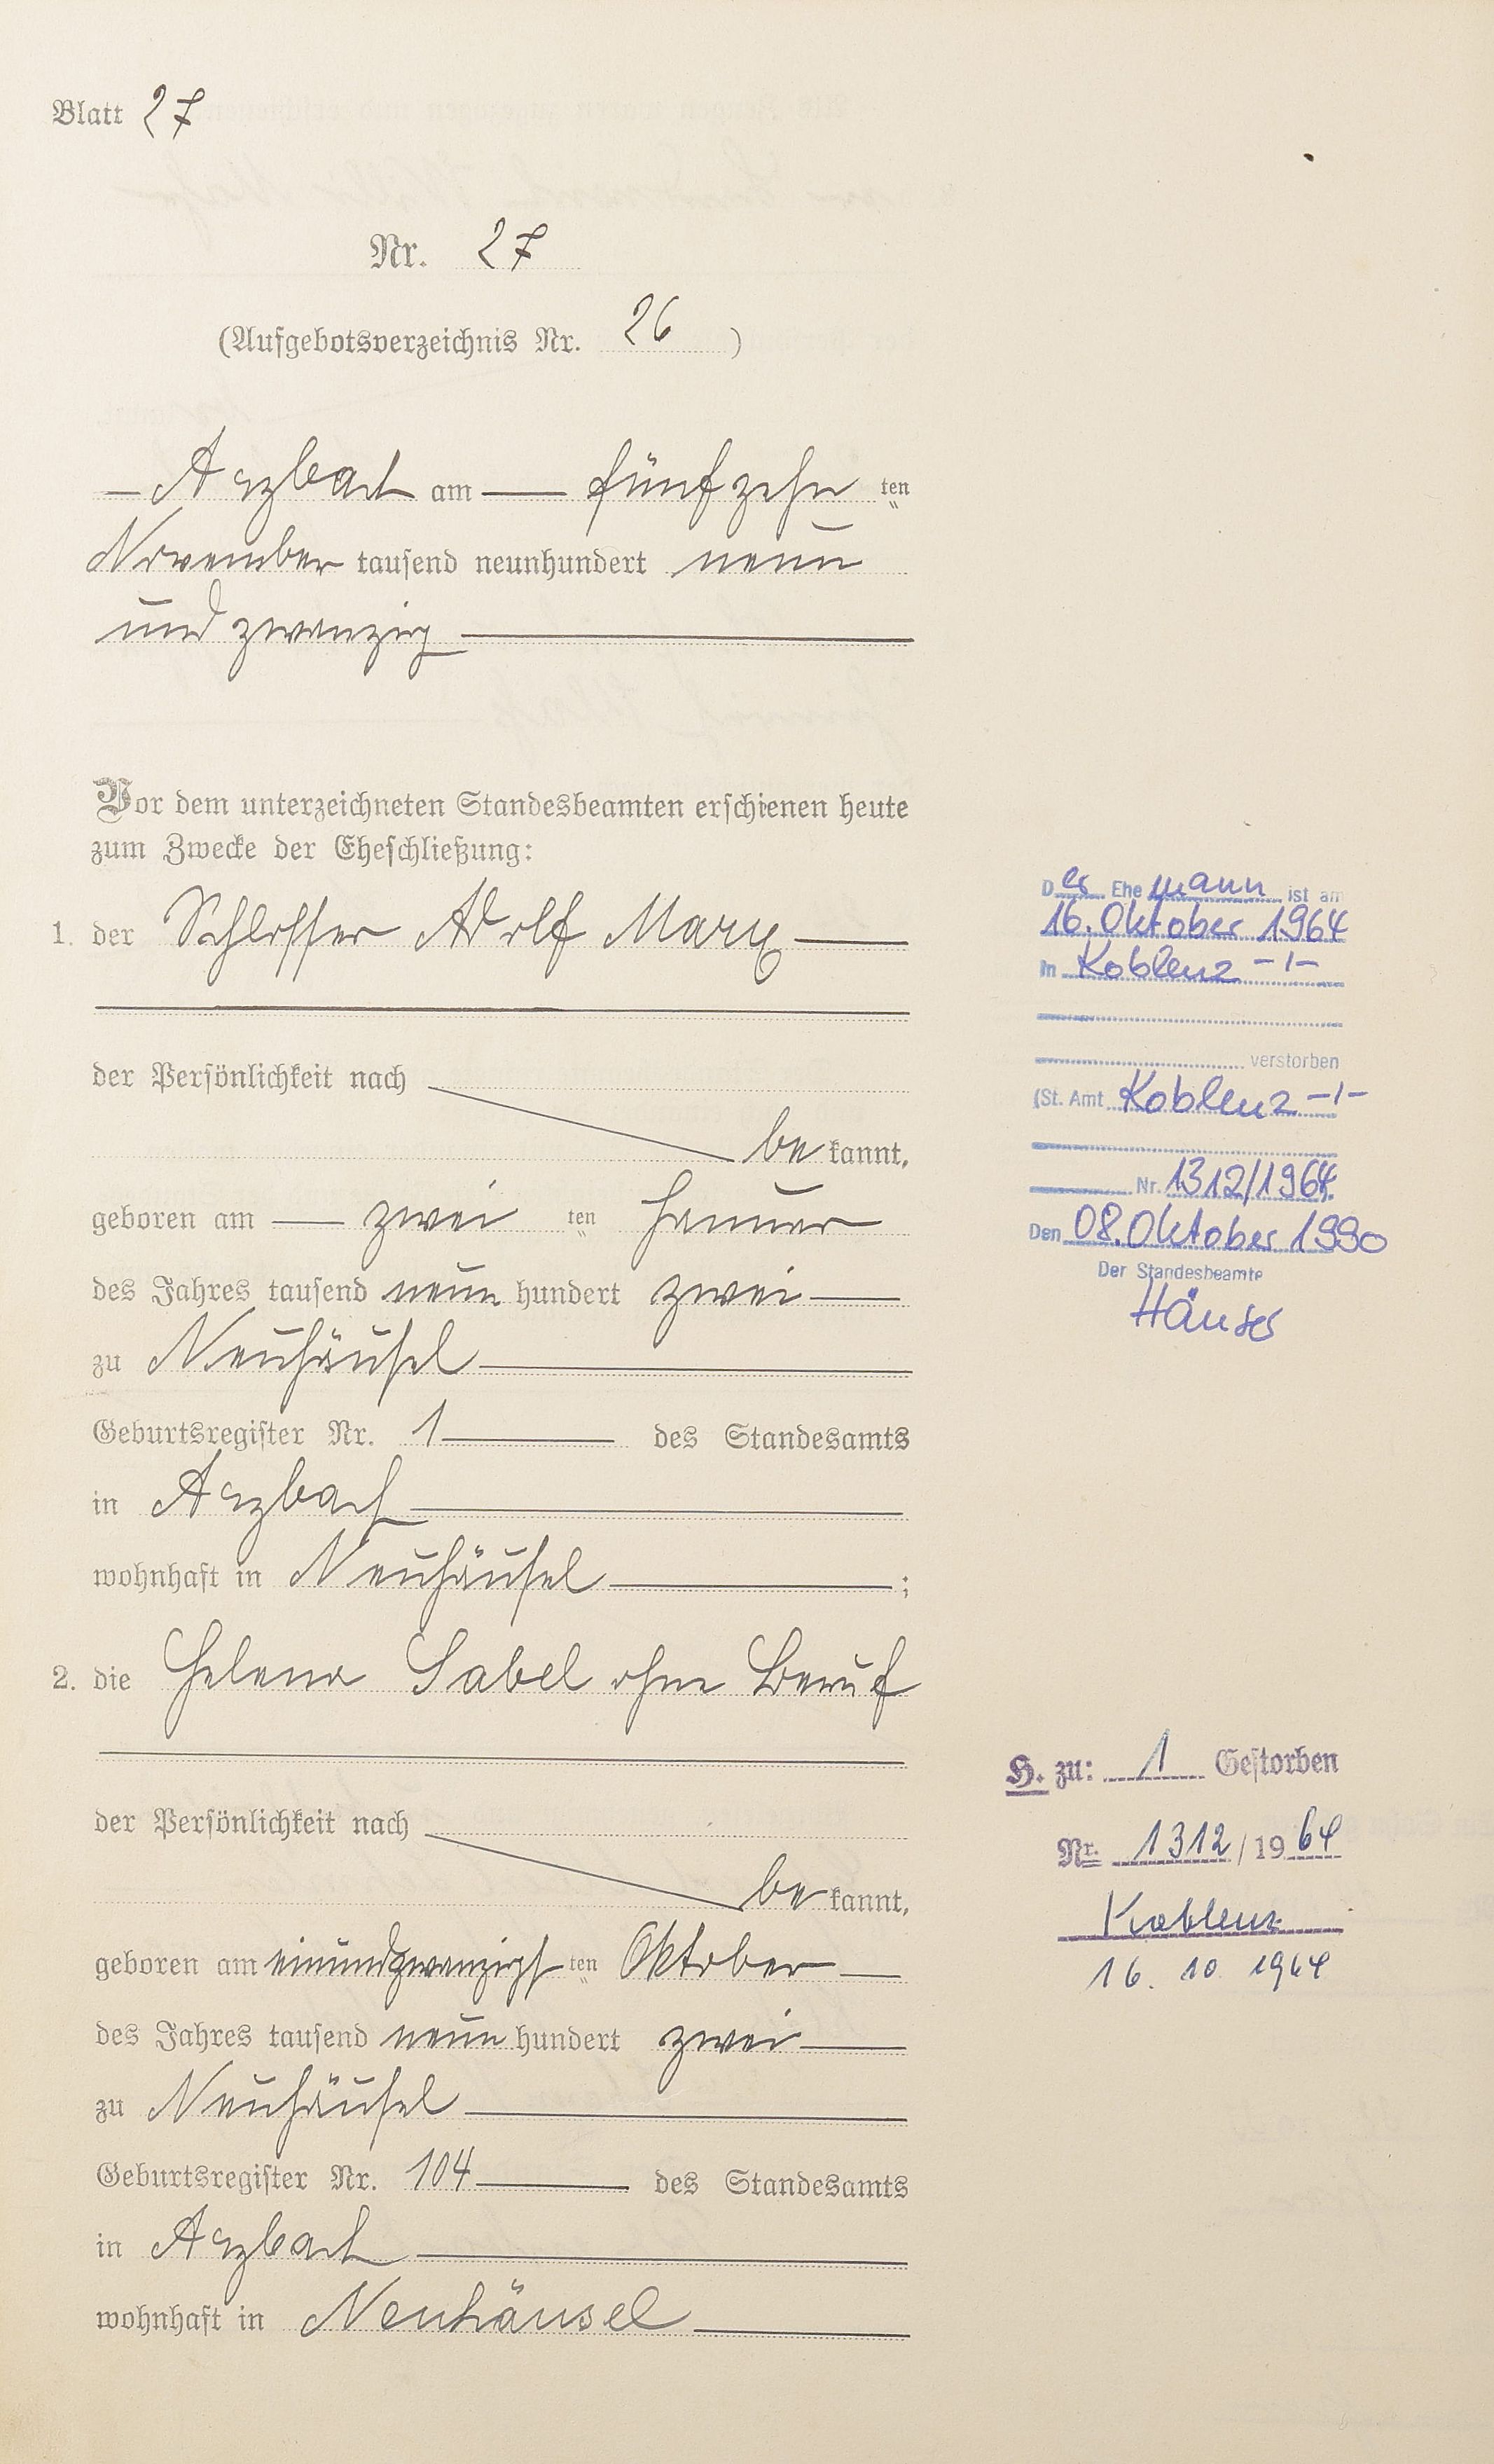 Blatt 27
Nr. 27
(Aufgebotsverzeichnis Nr. 26 )
Arzbach am fünfzehn ten
November tausend neunhundert neun
und zwanzig
Vor dem unterzeichneten Standesbeamten erschienen heute
zum Zwecke der Eheschließung:
1. der Schlosser Adolf Marx
der Persönlichkeit nach
be kannt,
geboren am zwei ten Januar
des Jahres tausend neun hundert zwei
zu Neuhäusel
Geburtsregister Nr. 1 des Standesamts
in Arzbach
wohnhaft in Neuhäusel ;
2. die Helena Sabel ohne Beruf
der Persönlichkeit nach
be kannt,
geboren am einundzwanzigs ten Oktober
des Jahres tausend neun hundert zwei
zu Neuhäusel
Geburtsregister Nr. 104 des Standesamts
in Arzbach
wohnhaft in Neuhäusel
Der Ehemann ist am
16. Oktober 1964
in Koblenz -1-
verstorben
(St. Amt Koblenz -1-
Nr. 1312/1964
Den 08. Oktober 1990
Der Standesbeamte
Häuser
H. zu: 1 Gestorben
Nr. 1312/1964
Koblenz
16. 10. 1964